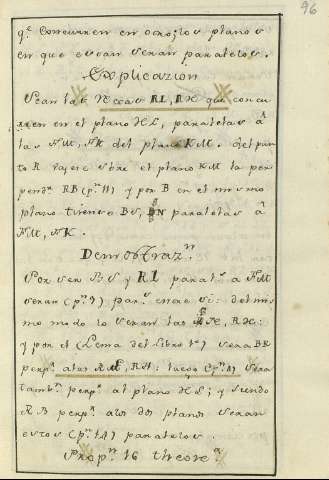 96
qe concurren en otro; los planos
en que estan seran paralelos.
Explicazion
Sean las Rectas RL, RH que concu
rren en el plano HL, paralelas à
las AM, AK del plano KM. del pun
to R vajese sobre el plano KM la per
pendr RB (pn 11) y por B en el mismo
plano tirense BS, BN paralelas à
AM, AK.
Demostrazn.
Por ser BS y RL paras à AM
seran (pn 9) pars entre si: del mis
mo modo lo seran las RH:
y por el (Lema del Libro 1o) sera BR
perpr a las RL, RH: luego (pn 4) sera
tambn perpr al plano HL; y siendo
RB perpr a los dos planos seran
estos (pn 14) paralelos.
Propn 16 theorea